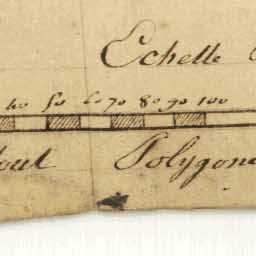 Echelle
40 50 60 70 80 90 100
tout Polygone